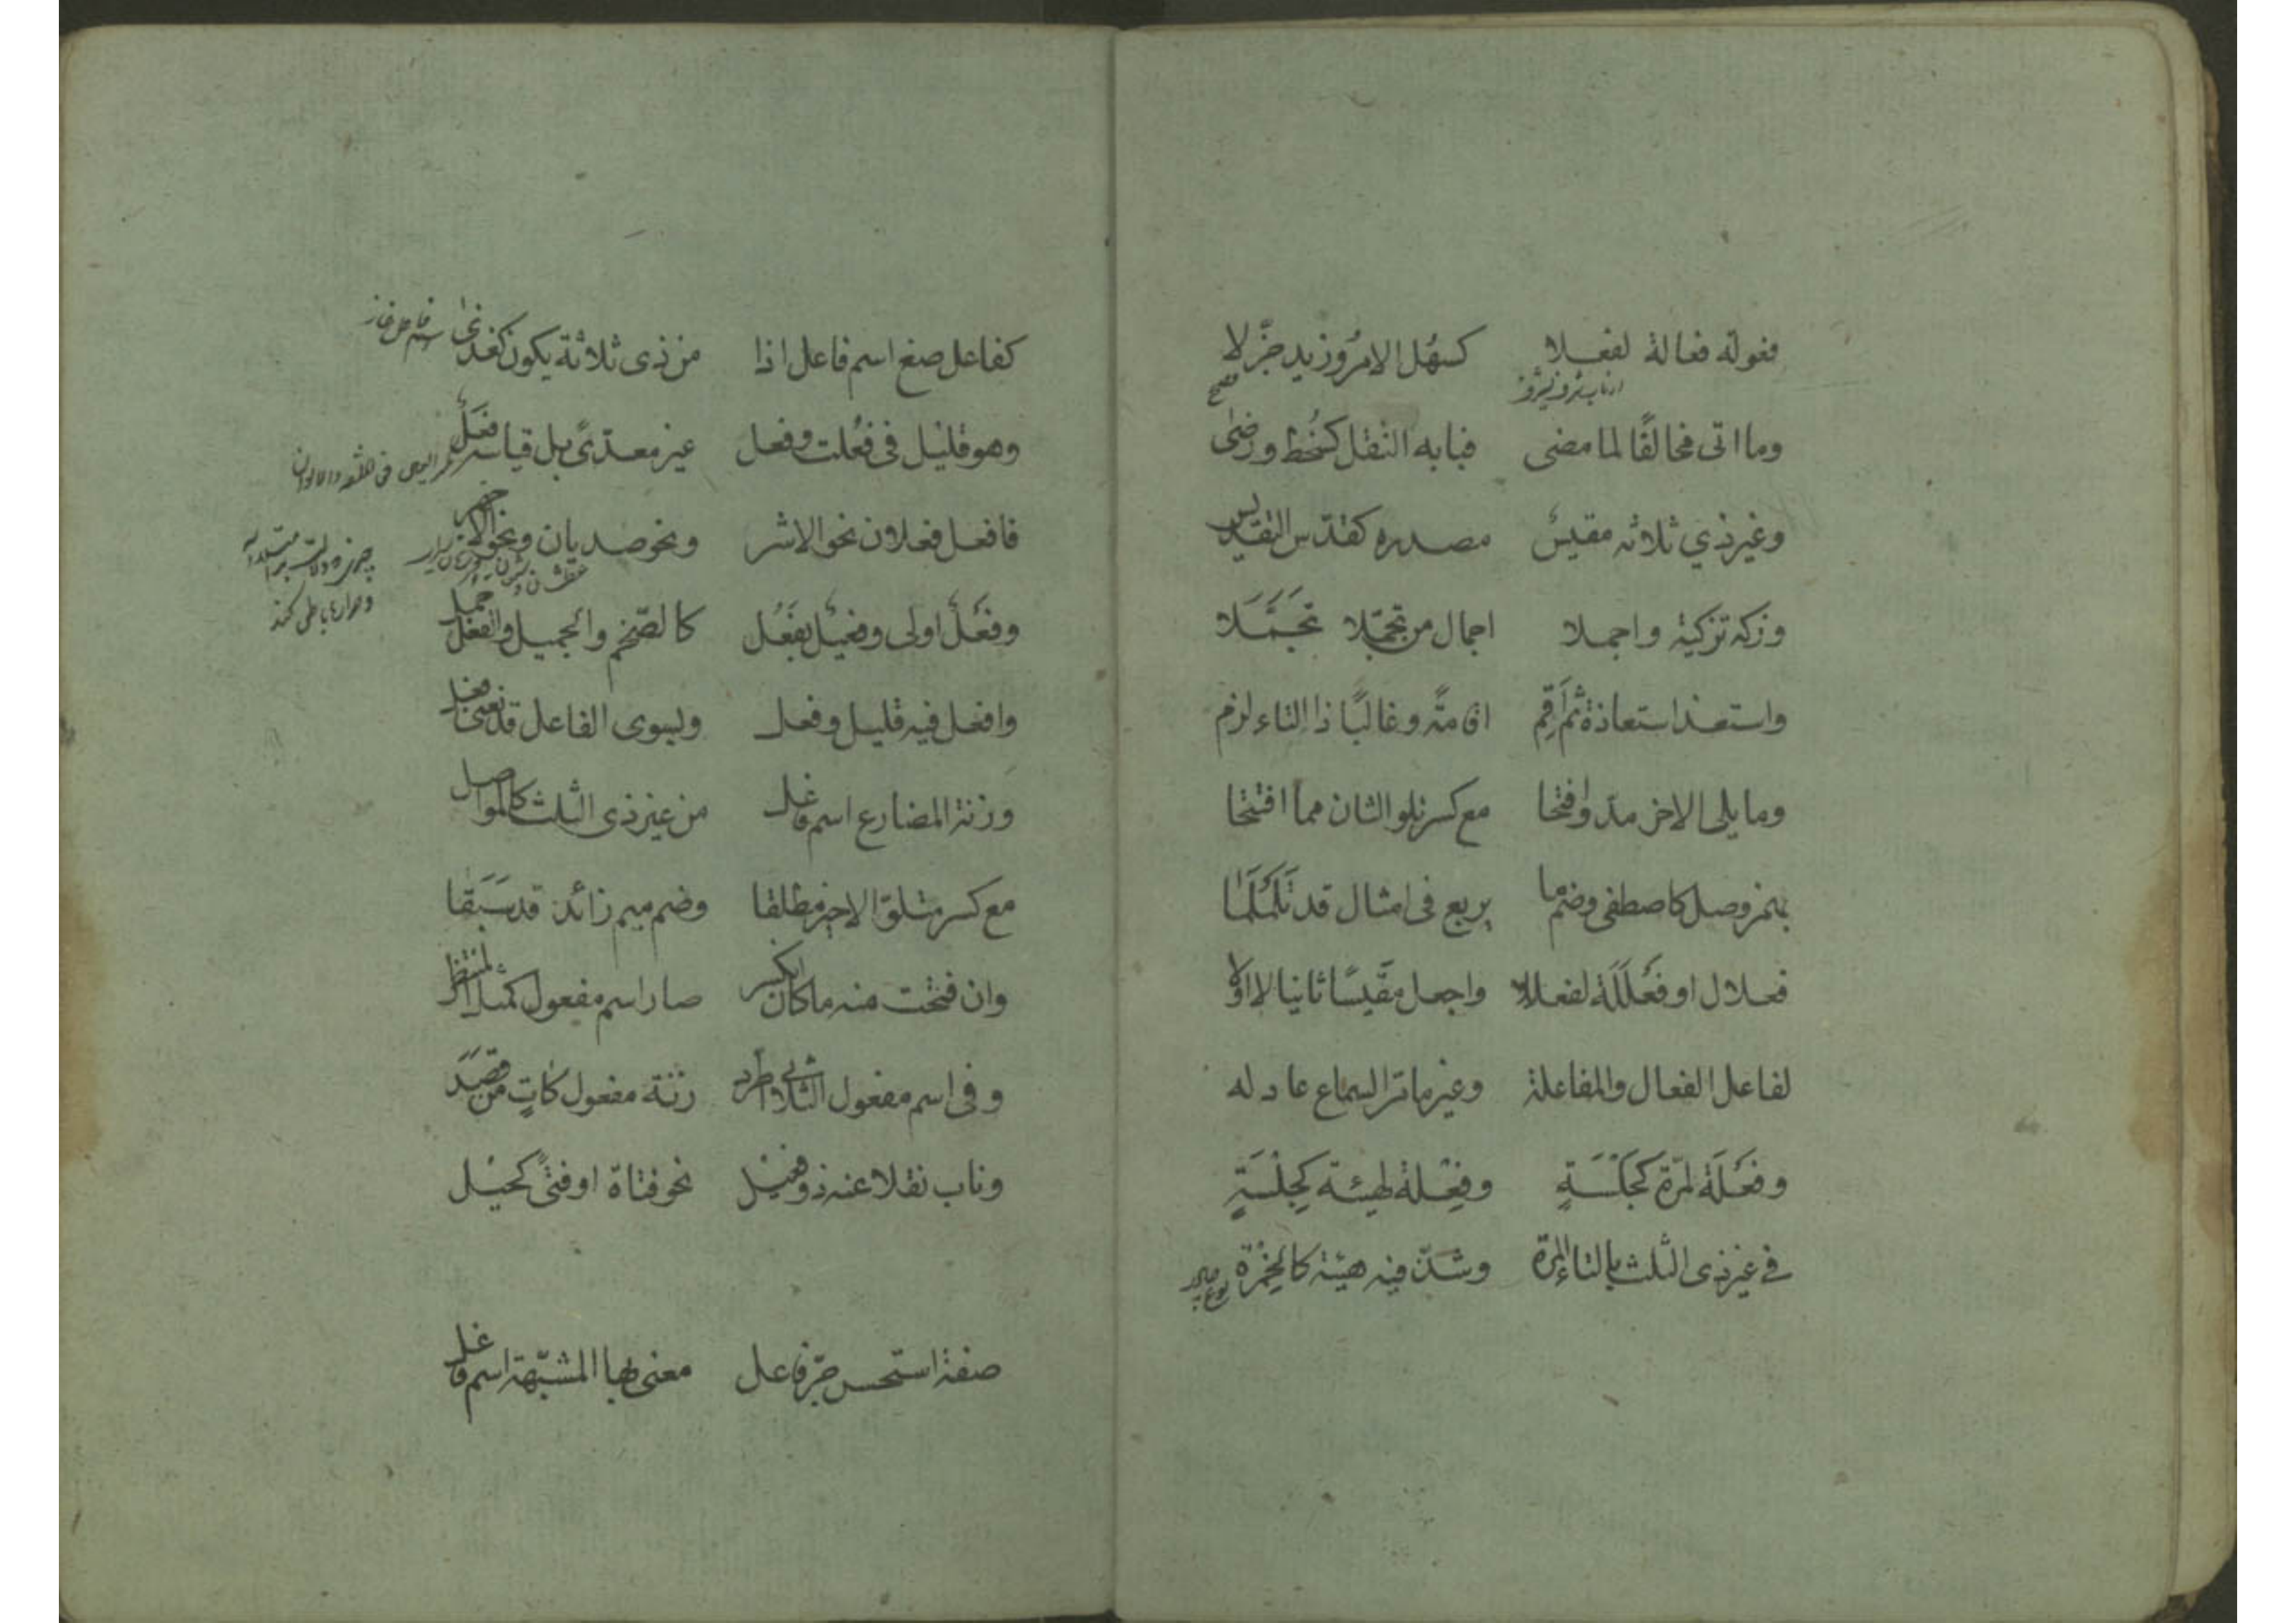 فعولة فعالة لفعلا كسهُل الامرُ وزيد جزّلا
وما اتى مخالفًا لما مضى فبابه النقل كسُخط ورضىً
وغير ذي ثلاثه مقيسُ مصدره كقدّس التقديس
وزكه تزكية واجملا اجمال من تجمّلا تَجَمَّلا
واستعذ استعاذة ثم اَقِم اقامة وغالبًا ذا التاء لزم
وما يلى الاخر مدّ وافتحا مع كسر تلو الثان مما افتتحا
بهمز وصل كاصطفى وضم ما يربع فى امثال قد تَلَمْلَمَا
فعلال او فَعْلَلَة لفعللا واجعل مقيسًا ثانيا لا اولا
لفاعل الفعال والمفاعلة وغير ما مر السماع عادله
وفَعْلَة لمرّة كجَلْسَةٍ وفِعْلة لهيئة كجِلْسَةٍ
في غير ذى الثلث بالتا المرة وشذّ فيه هيئة كالخِمْرة
كفاعل صغ اسم فاعل اذا من ذى ثلاثة يكون كغذى
وهو قليل فى فعُلت وفعل غير معدّىً بل قياسه فَعِل
فافعل فعلان نحو الاشر ونحو صديان ونحو الاجهر
وفَعْلٌ اولى وفعيْل بفَعُل كالضّخم والجميل والفعل جمل
وافعل فيه قليل وفعل وبسوى الفاعل قد يغنى فعل
وزنة المضارع اسم فاعل من غير ذى الثلث كالمواصل
مع كسر متلوّ الاخير مطلقا وضم ميم زائد قد سَبَقا
وان فتحت منه ما كان انكسر صار اسم مفعول كمثل المنتظر
وفى اسم مفعول الثلاثي اطّرد زنة مفعول كاتٍ من قَصَدَ
وناب نقلا عنه ذو فعيْل نحو فتاة او فتىً كحيْل
صفة استحسن جرّ فاعل معنى بها المشبّهة اسم فاعل